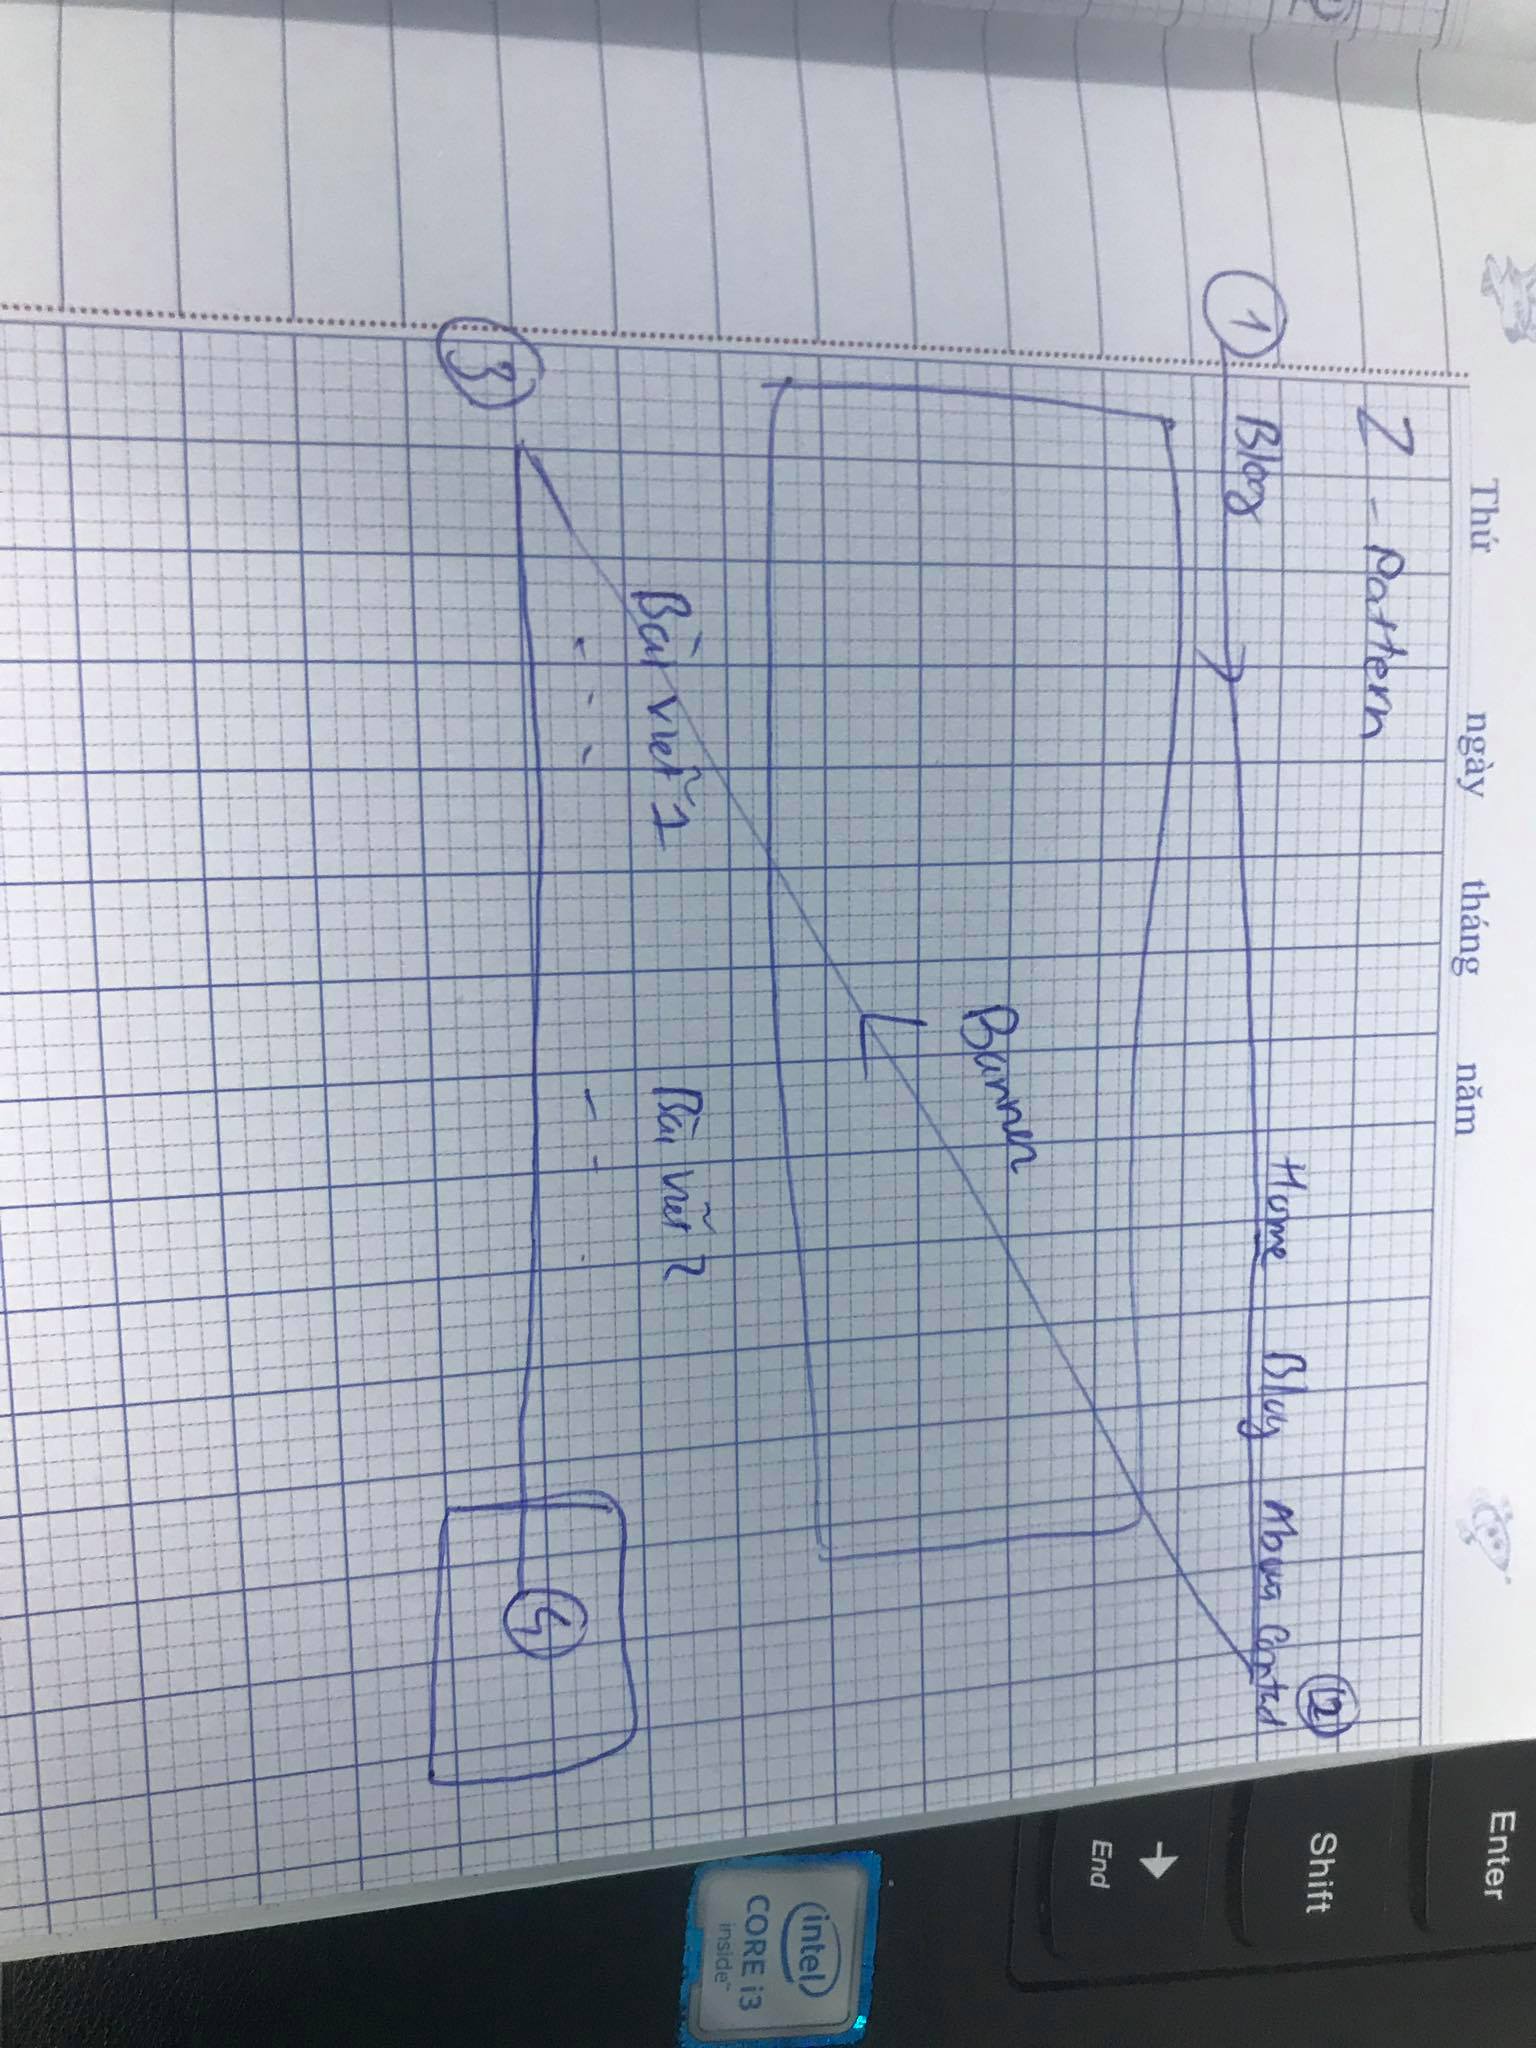 Thứ ngày tháng năm
Z - Pattern
2
1 Blog Home Blog About Contact
Banner
Bài viết 1 Bài viết 2
3
4
Enter
Shift
End
intel
CORE i3
inside™